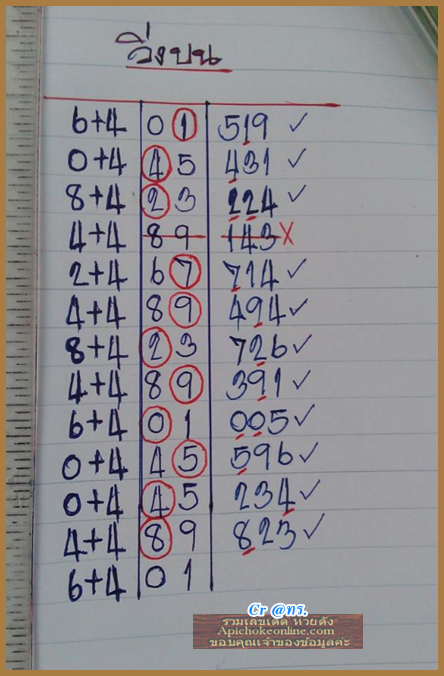 วิ่งบน
6+4 0 1 519 ✓
0+4 4 5 431 ✓
8+4 2 3 224 ✓
4+4 8 9 143 X
2+4 6 7 714 ✓
4+4 8 9 494 ✓
8+4 2 3 726 ✓
4+4 8 9 391 ✓
6+4 0 1 005 ✓
0+4 4 5 596 ✓
0+4 4 5 234 ✓
4+4 8 9 823 ✓
6+4 0 1
Cr @กร.
รวมเลขเด็ด หวยดัง
Apichokeonline.com
ขอบคุณเจ้าของข้อมูลค่ะ